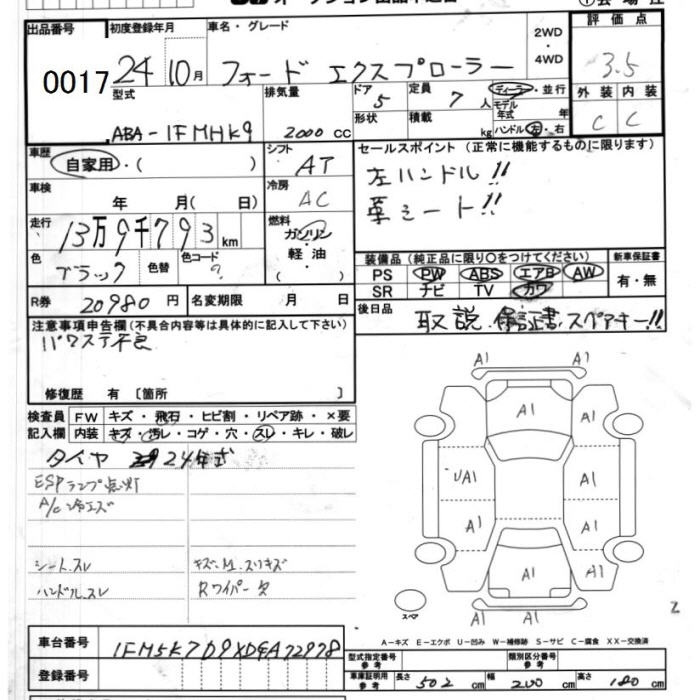 出品番号 0017
初度登録年月 24 10月
車名・グレード フォード エクスプローラー
2WD・4WD
評価点 3.5
外装 C 内装 C
型式 ABA-1FMHK9
排気量 2000 cc
ドア 5
形状
定員 7 人
積載 kg
ディーラー・並行
モデル年式 年
ハンドル 左・右
車歴 自家用・( )
シフト AT
セールスポイント (正常に機能するものに限ります)
左ハンドル!!
革シート!!
車検 年 月( 日)
冷房 AC
走行 13万9千793 km
燃料 ガソリン 軽油 ( )
色 ブラック 色替
色コード ?
装備品(純正品に限り○をつけてください)
PS PW ABS エアB AW
SR ナビ TV カワ
新車保証書 有・無
R券 20980 円
名変期限 月 日
後日品 取説.保証書.スペアキー!!
注意事項申告欄(不具合内容等は具体的に記入して下さい)
パワステ不良
修復歴 有 〔箇所 〕
検査員記入欄
FW キズ・飛石・ヒビ割・リペア跡・×要
内装 キズ・汚レ・コゲ・穴・スレ・キレ・破レ
タイヤ 24年式
ESPランプ点灯
A/C冷エズ
シート.スレ
ハンドル.スレ
Rワイパー欠
A1 A1
A1
A1 A1
UA1 A1
A1 A1
A1
A1 A1
スペア
A-キズ E-エクボ U-凹み W-補修跡 S-サビ C-腐食 XX-交換済
車台番号 1FM5K7D9XDGA72978
登録番号
型式指定番号 参考
類別区分番号 参考
車庫証明用 参考 長さ 502 cm 幅 200 cm 高さ 180 cm